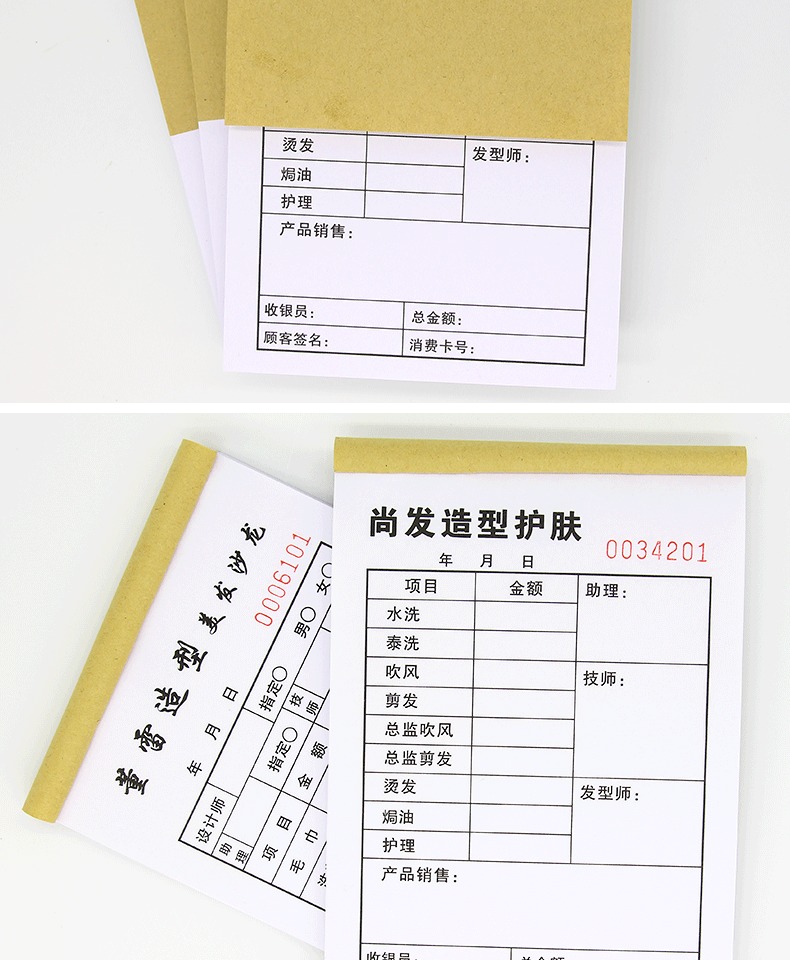 烫发
发型师：
焗油
护理
产品销售：
收银员：
总金额：
顾客签名：
消费卡号：
董雷造型美发沙龙
0006101
年 月 日
指定〇 男〇 女〇
设计师
技师
助理
指定〇
项目
金额
毛巾
尚发造型护肤
0034201
年 月 日
项目 金额 助理：
水洗
泰洗
吹风 技师：
剪发
总监吹风
总监剪发
烫发 发型师：
焗油
护理
产品销售：
收银员：
总金额：